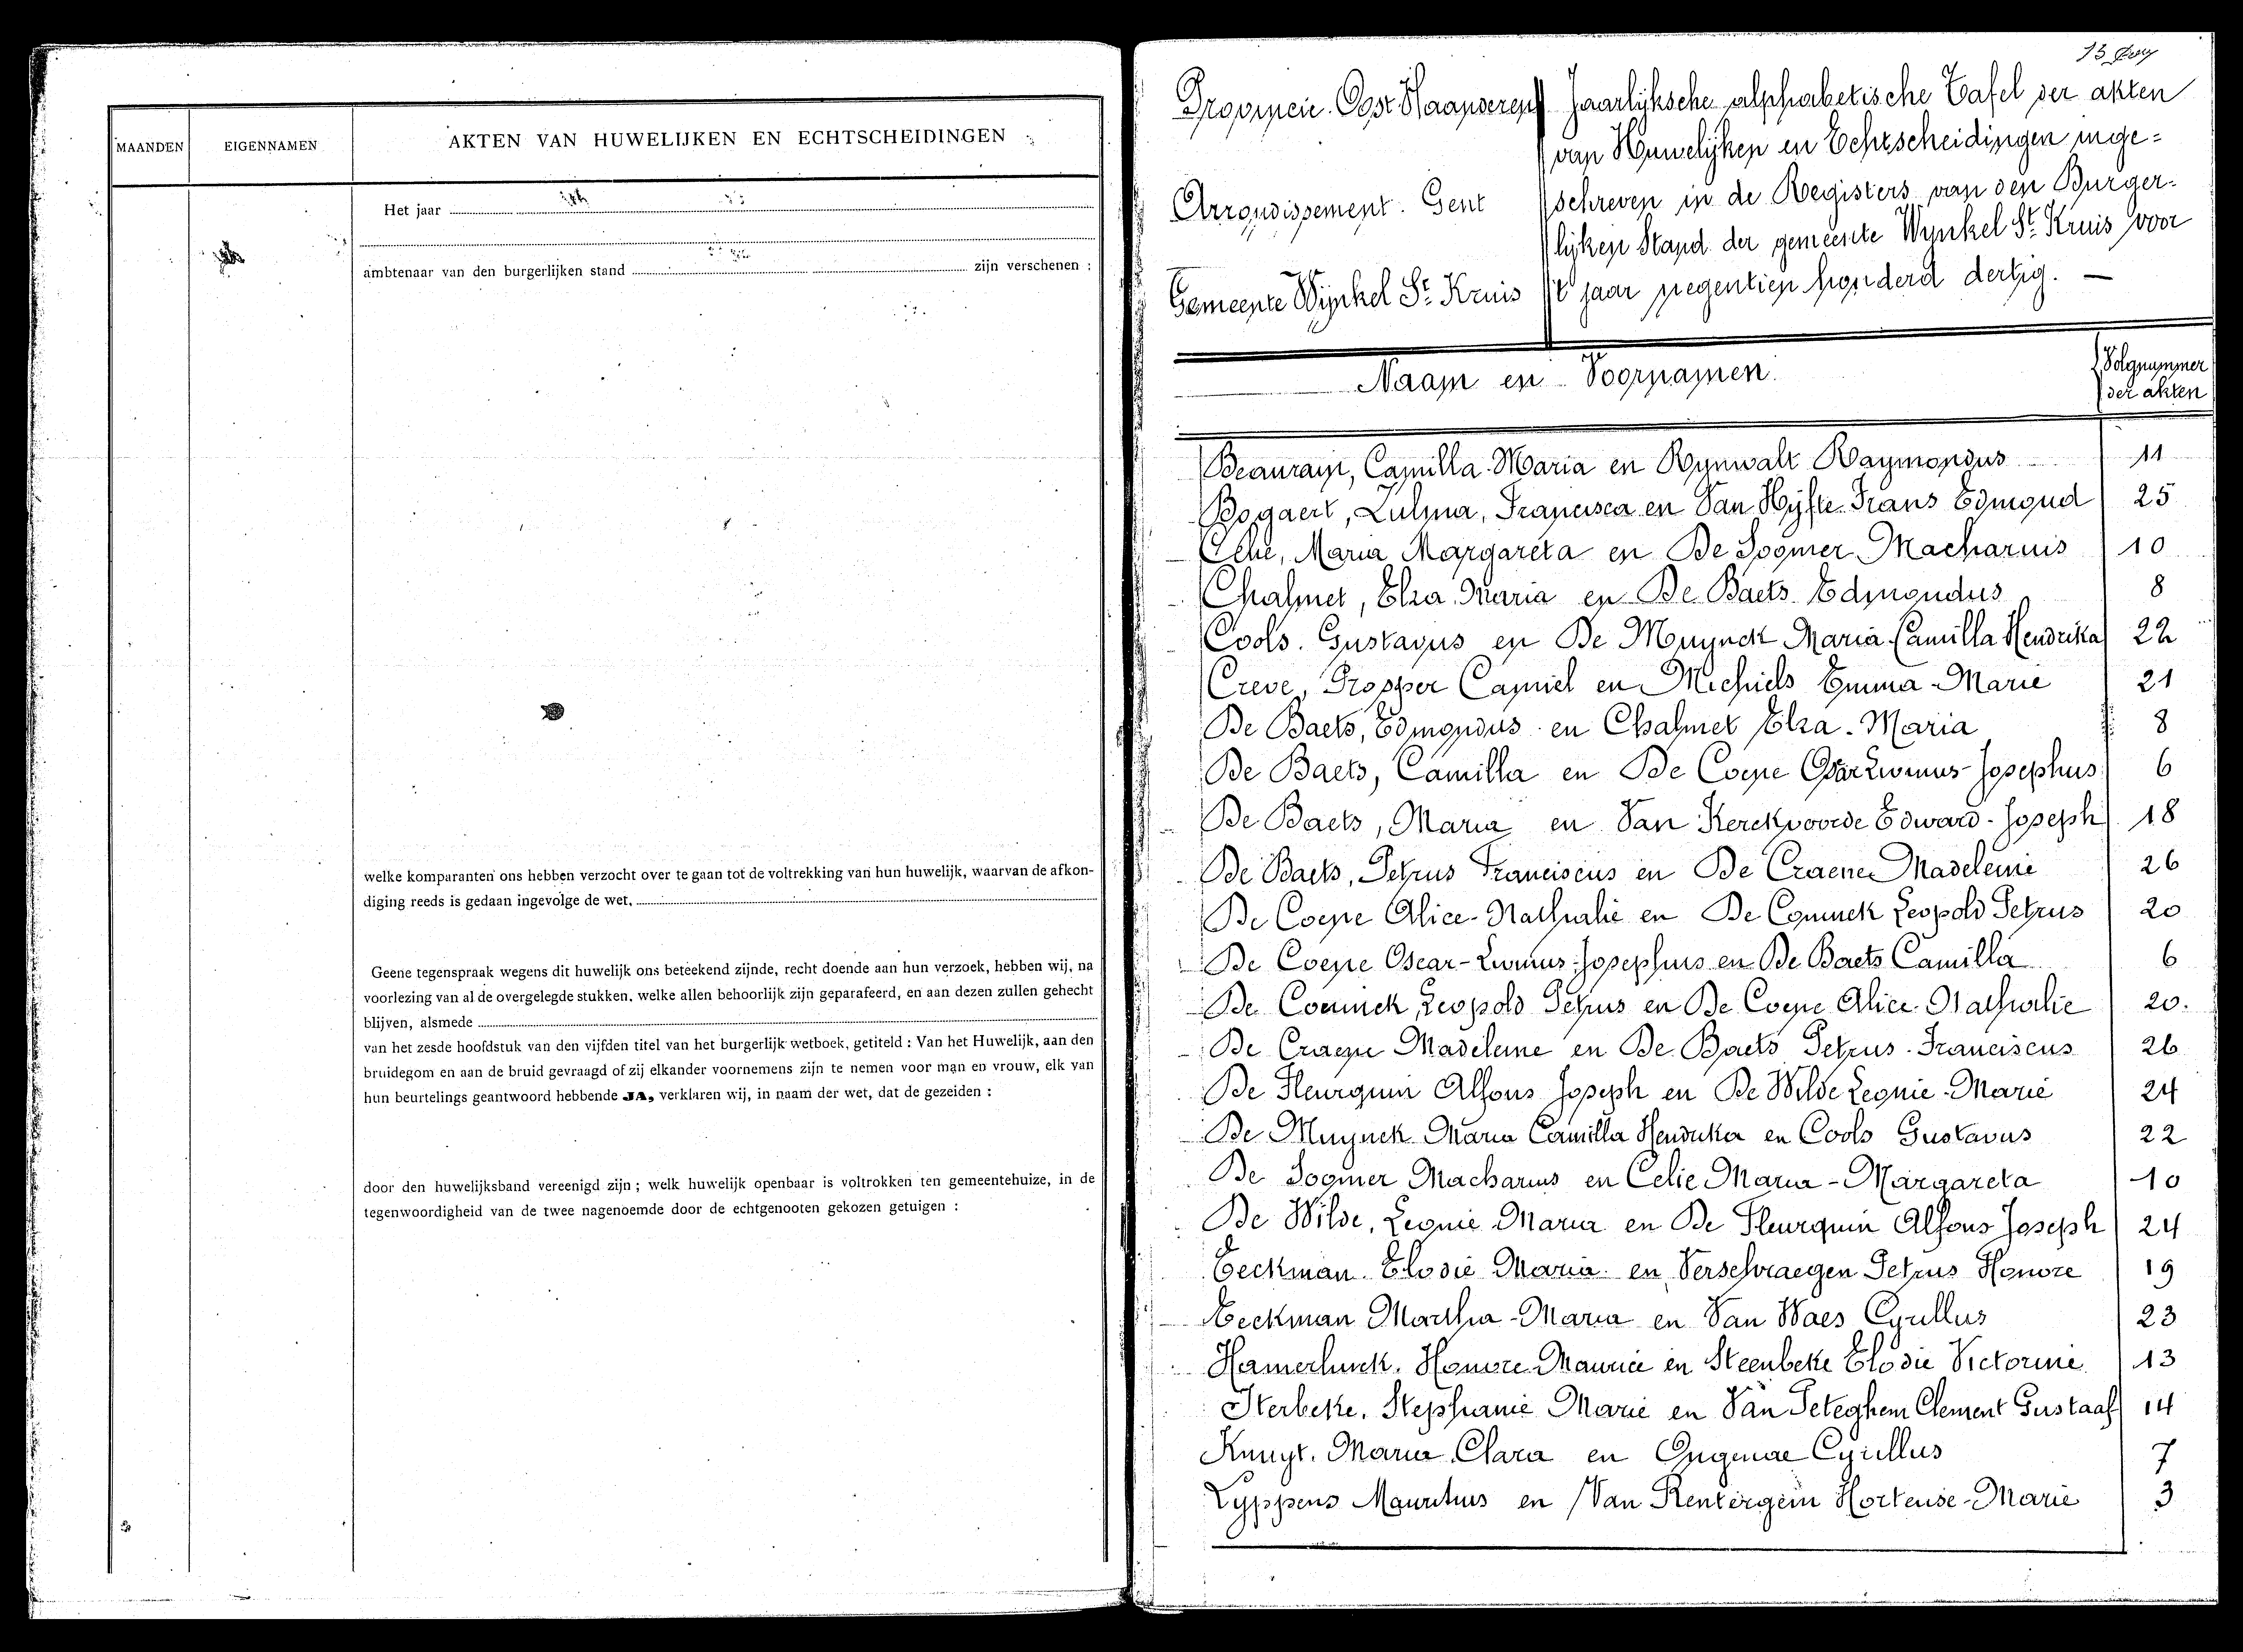 MAANDEN
EIGENNAMEN
AKTEN VAN HUWELIJKEN EN ECHTSCHEIDINGEN
Het jaar
ambtenaar van den burgerlijken stand zijn verschenen :
welke komparanten ons hebben verzocht over te gaan tot de voltrekking van hun huwelijk, waarvan de afkon-
diging reeds is gedaan ingevolge de wet.
Geene tegenspraak wegens dit huwelijk ons beteekend zijnde, recht doende aan hun verzoek, hebben wij, na
voorlezing van al de overgelegde stukken, welke allen behoorlijk zijn geparafeerd, en aan dezen zullen gehecht
blijven, alsmede
van het zesde hoofdstuk van den vijfden titel van het burgerlijk wetboek, getiteld : Van het Huwelijk, aan den
bruidegom en aan de bruid gevraagd of zij elkander voornemens zijn te nemen voor man en vrouw, elk van
hun beurtelings geantwoord hebbende JA, verklaren wij, in naam der wet, dat de gezeiden :
door den huwelijksband vereenigd zijn ; welk huwelijk openbaar is voltrokken ten gemeentehuize, in de
tegenwoordigheid van de twee nagenoemde door de echtgenooten gekozen getuigen :
13
Provincie Oost Vlaanderen
Arrondissement. Gent
Gemeente Wijnkel St. Kruis
Jaarlijksche alphabetische Tafel der akten
van Huwelijken en Echtscheidingen inge=
schreven in de Registers van den Burger=
lijken Stand der gemeente Wynkel St. Kruis voor
't jaar negentien honderd dertig. —
Naam en Voornamen.
Volgnummer
der akten
Beaurain, Camilla Maria en Rynwalt Raymondus 11
Bogaert, Zulma, Francisca en Van Hyfte Frans Edmond 25
Celie, Maria Margareta en De Sogmer Macharius 10
Chalmet, Elza Maria en De Baets Edmondus 8
Cools. Gustavus en De Muynck Maria Camilla Hendrika 22
Creve, Prosper Camiel en Michiels Emma-Marie 21
De Baets, Edmondus en Chalmet Elza-Maria 8
De Baets, Camilla en De Coene Oscar Livinus-Josephus 6
De Baets, Maria en Van Kerckvoorde Edward-Joseph 18
De Baets, Petrus Franciscus en De Craene Madeleine 26
De Coene Alice-Nathalie en De Coninck Leopold Petrus 20
De Coene Oscar-Livinus-Josephus en De Baets Camilla 6
De Coninck, Leopold Petrus en De Coene Alice-Nathalie 20.
De Craene Madeleine en De Baets Petrus-Franciscus 26
De Fleurquin Alfons Joseph en De Wilde Leonie-Marie 24
De Muynck Maria Camilla Hendrika en Cools Gustavus 22
De Sogmer Macharius en Celie Maria-Margareta 10
De Wilde, Leonie Maria en De Fleurquin Alfons Joseph 24
Eeckman Elodie Maria en Verschraegen Petrus Honore 19
Eeckman Martha-Maria en Van Waes Cyrillus 23
Hamerlinck, Honore Maurice en Steenbeke Elodie Victorine 13
Sterbeke, Stephanie Marie en Van Peteghem Clement Gustaaf 14
Knuyt, Maria Clara en Ongenae Cyrillus 7
Lyppens Mauritius en Van Rentergem Hortense-Marie 3